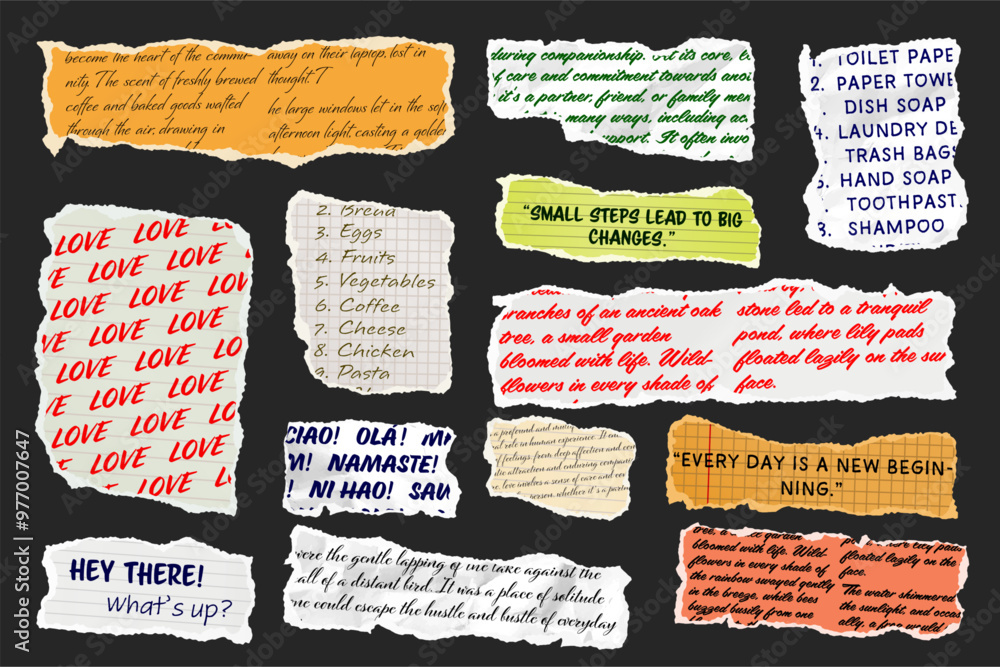 become the heart of the commu-
nity. The scent of freshly brewed
coffee and baked goods wafted
through the air, drawing in
away on their laptop, lost in
thought. T
he large windows let in the sof
afternoon light, casting a golde
during companionship.
of care and commitment towards anoi
it's a partner, friend, or family mem
many ways, including ac
pport. It often invo
1. TOILET PAPE
2. PAPER TOWE
DISH SOAP
4. LAUNDRY DE
TRASH BAGS
6. HAND SOAP
TOOTHPAST
8. SHAMPOO
“SMALL STEPS LEAD TO BIG
CHANGES.”
LOVE LOVE
LOVE LOVE
LOVE LOVE
LOVE LOVE
LOVE LOVE
LOVE LOVE
LOVE LOVE
LOVE LOVE
LOVE LOVE
LOVE LOVE
LOVE
2. Bread
3. Eggs
4. Fruits
5. Vegetables
6. Coffee
7. Cheese
8. Chicken
9. Pasta
ranches of an ancient oak
tree, a small garden
bloomed with life. Wild-
flowers in every shade of
stone led to a tranquil
pond, where lily pads
floated lazily on the sur
face.
CIAO! OLÁ!
M! NAMASTE!
! NI HAO! SAW
a profound and
al role in human experience. It en
of feelings, from deep affection and
tic attraction and enduring compani
e, love involves a sense of care and
person, whether it's a partn
“EVERY DAY IS A NEW BEGIN-
NING.”
HEY THERE!
What's up?
were the gentle lapping of the lake against the
all of a distant bird. It was a place of solitude
ne could escape the hustle and bustle of everyday
tree, a small garden
bloomed with life. Wild-
flowers in every shade of
the rainbow swayed gently
in the breeze, while bees
buzzed busily from one
pond, where lily pads
floated lazily on the
face.
The water shimmered
the sunlight, and occas
ally, a frog would
Adobe Stock | #977007647